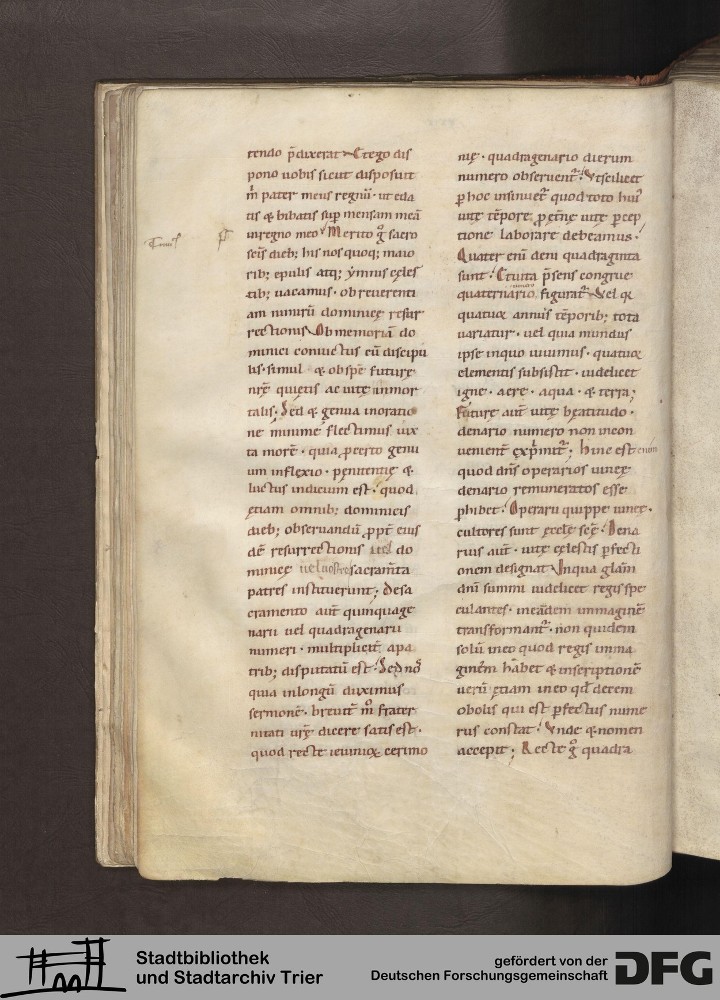 tendo p̄dixerat. Et ego dis
pono uobis sicut disposuit
m̄ pater meus regnū. ut eda
tis & bibatis sup̄ mensam meā
in regno meo. Merito g̊ sacro
seīs dieb; his nos quoq; maio
rib; epulis atq; ymnis cęles
tib; uacamus. ob reuerenti
am nimirū dominicę resur
rectionis. Ob memoriā do
minici conuictus cū discipu
lis. simul & ob spē futurę
nr̄ę quietis ac uitę inmor
talis. Sed & genua in oratio
ne minime flectimus iux
ta morē. quia p̄certo genu
um inflexio. penitentię &
luctus indicium est. quod
ętiam omnib; dominicis
dieb; observandū p̱pt̄ eius
dē resurrectionis uel do
minicę sacram̄ta
patres instituerunt; De sa
cramento aut̄ quinquage
narii uel quadragenarii
numeri. multiplicit̄ a pa
trib; disputatū est. Sed nō
quia in longū duximus
sermonē. breuit̄ m̊ frater
nitati ur̄ę dicere satis est.
quod recte ieiunioꝝ cerimo
nię. quadragenario dierum
numero obseruent̄. Ut scilicet
p̱ hoc insinuet̄ quod toto hui᾽
uitę tēpore, p̱ et̄nę uitę p̱cep
tione laborare debeamus.
Quater enī deni quadraginta
sunt. Et uita p̄sens congrue
quaternario numero figurat̄. Vel q̄
quatuoꝝ annus tēporib; tota
uariatur. uel quia mundus
ipse in quo uiuimus. quatuoꝝ
elementis subsistit. uidelicet
igne. aere. aqua. & terra;
Futurę aut̄ uitę beatitudo.
denario numero non incon
uenient̄ exp̄mit̄; hinc est enim
quod dn̄s operarios uinęę
denario remuneratos esse
p̱hibet. Operarii quippe uineę.
cultores sunt ęcclę scę. Dena
rius aut̄. uitę cęlestis p̱fecti
onem designat. In qua głam
dnī summi uidelicet regis spe
culantes. in eadem immaginē
transformant̄. non quidem
solū in eo quod regis imma
ginem habet & inscriptionē
uerū ętiam in eo qđ decem
obolis qui est p̱fectus nume
rus constat. Unde & nomen
accepit; Recte g̊ quadra
Stadtbibliothek
und Stadtarchiv Trier
gefördert von der
Deutschen Forschungsgemeinschaft
DFG